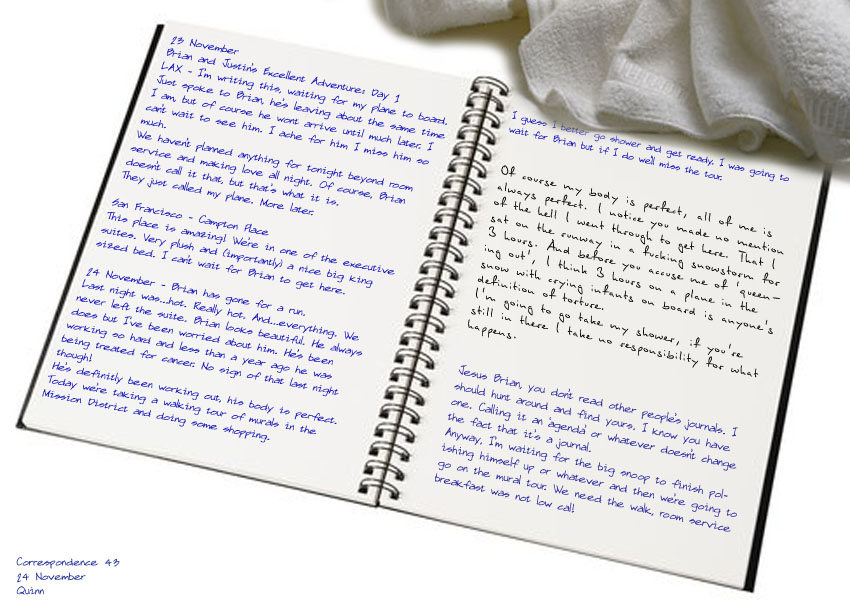 23 November
Brian and Justin's Excellent Adventure: Day 1
LAX - I'm writing this, waiting for my plane to board.
Just spoke to Brian, he's leaving about the same time
I am, but of course he wont arrive until much later. I
can't wait to see him. I ache for him I miss him so
much.
We haven't planned anything for tonight beyond room
service and making love all night. Of course, Brian
doesn't call it that, but that's what it is.
They just called my plane. More later.
San Francisco - Campton Place
This place is amazing! We're in one of the executive
suites. Very plush and (importantly) a nice big king
sized bed. I can't wait for Brian to get here.
24 November - Brian has gone for a run.
Last night was...hot. Really hot. And...everything. We
never left the suite. Brian looks beautiful. He always
does but I've been worried about him. He's been
working so hard and less than a year ago he was
being treated for cancer. No sign of that last night
though!
He's definitly been working out, his body is perfect.
Today we're taking a walking tour of murals in the
Mission District and doing some shopping.
I guess I better go shower and get ready. I was going to
wait for Brian but if I do we'll miss the tour.
Of course my body is perfect, all of me is
always perfect. I notice you made no mention
of the hell I went through to get here. That I
sat on the runway in a fucking snowstorm for
3 hours. And before you accuse me of 'queen-
ing out', I think 3 hours on a plane in the
snow with crying infants on board is anyone's
definition of torture.
I'm going to go take my shower, if you're
still in there I take no responsibility for what
happens.
Jesus Brian, you don't read other people's journals. I
should hunt around and find yours. I know you have
one. Calling it an 'agenda' or whatever doesn't change
the fact that it's a journal.
Anyway, I'm waiting for the big snoop to finish pol-
ishing himself up or whatever and then we're going to
go on the mural tour. We need the walk, room service
breakfast was not low cal!
Correspondence 43
24 November
Quinn